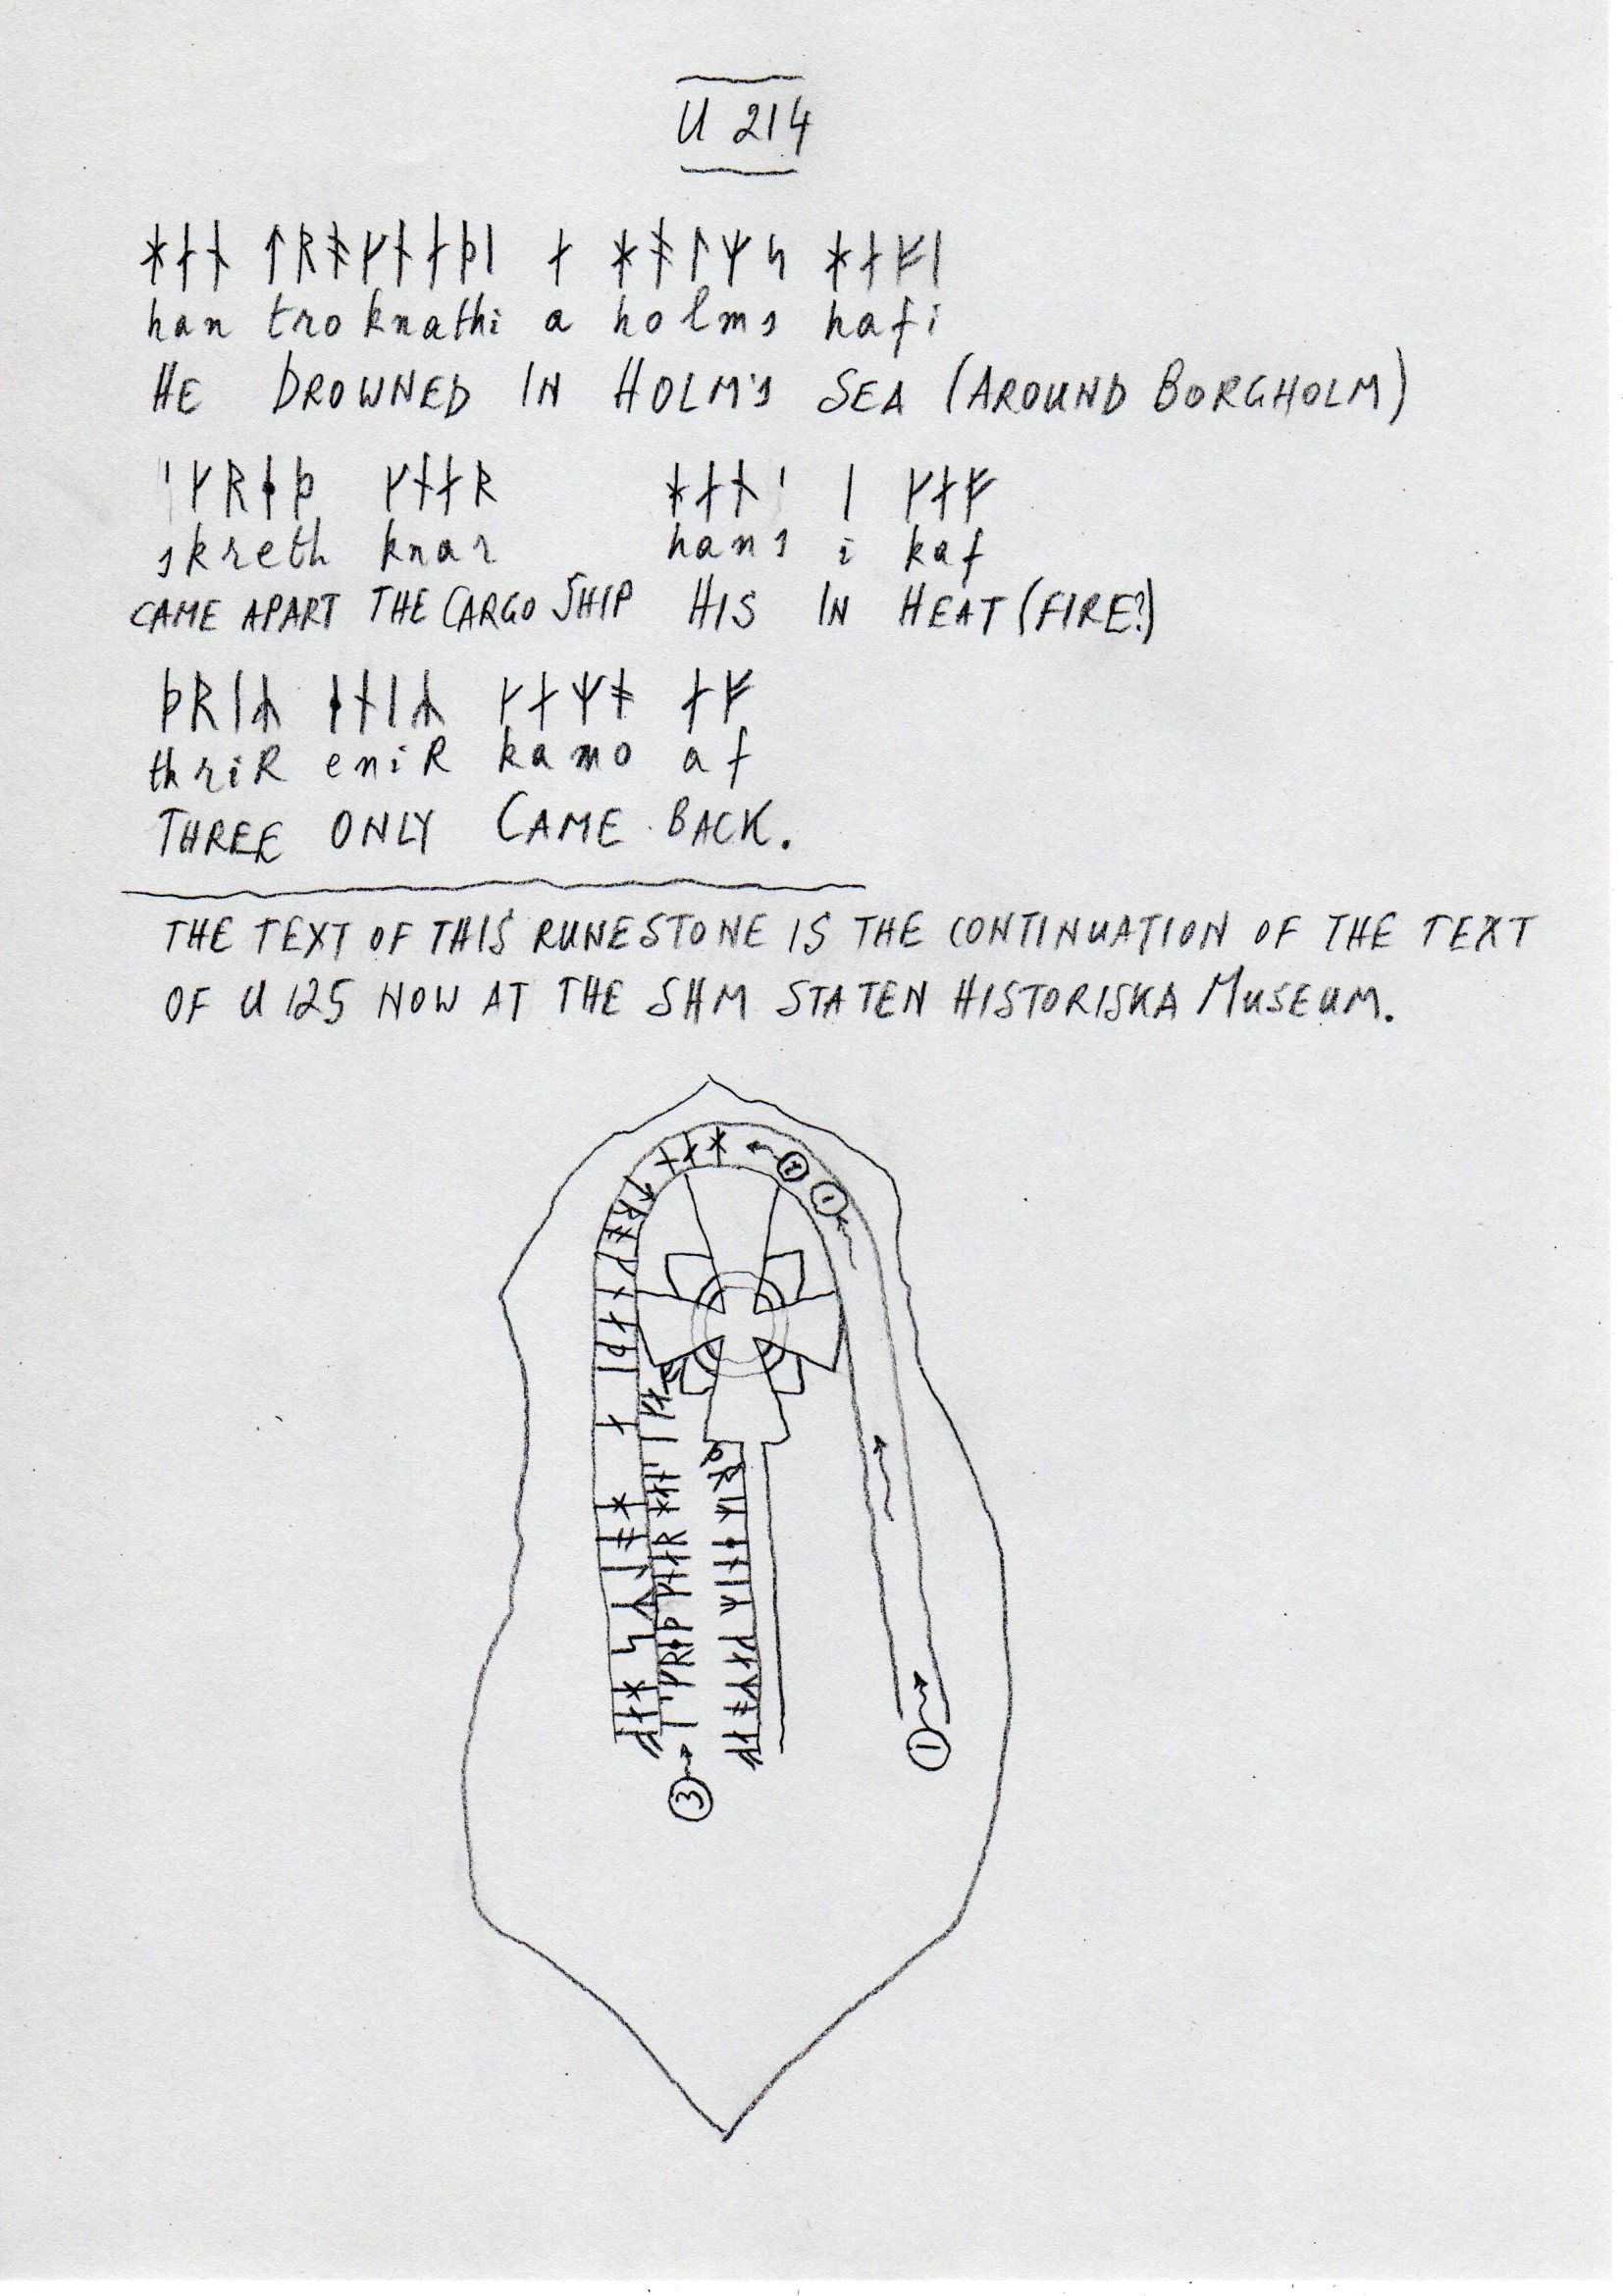 U 214
ᚼᛅᚾ ᛏᚱᚬᚴᚾᛅᚦᛁ ᛅ ᚼᚬᛚᛘᛋ ᚼᛅᚠᛁ
han troknathi a holms hafi
HE DROWNED IN HOLM'S SEA (AROUND BORGHOLM)
ᛌᚴᚱᛂᚦ ᚴᚾᛅᚱ ᚼᛅᚾᛌ ᛁ ᚴᛅᚠ
skreth knar hans i kaf
CAME APART THE CARGO SHIP HIS IN HEAT (FIRE?)
ᚦᚱᛁᛦ ᛂᚾᛁᛦ ᚴᛅᛘᚬ ᛅᚠ
thriR eniR kamo af
THREE ONLY CAME BACK.
THE TEXT OF THIS RUNESTONE IS THE CONTINUATION OF THE TEXT
OF U 125 NOW AT THE SHM STATEN HISTORISKA MUSEUM.
ᚼᛅᚾ ᛏᚱᚬᚴᚾᛅᚦᛁ ᛅ ᚼᚬᛚᛘᛋ ᚼᛅᚠᛁ
ᛌᚴᚱᛂᚦ ᚴᚾᛅᚱ ᚼᛅᚾᛌ ᛁ ᚴᛅᚠ
ᚦᚱᛁᛦ ᛂᚾᛁᛦ ᚴᛅᛘᚬ ᛅᚠ
1
3
1